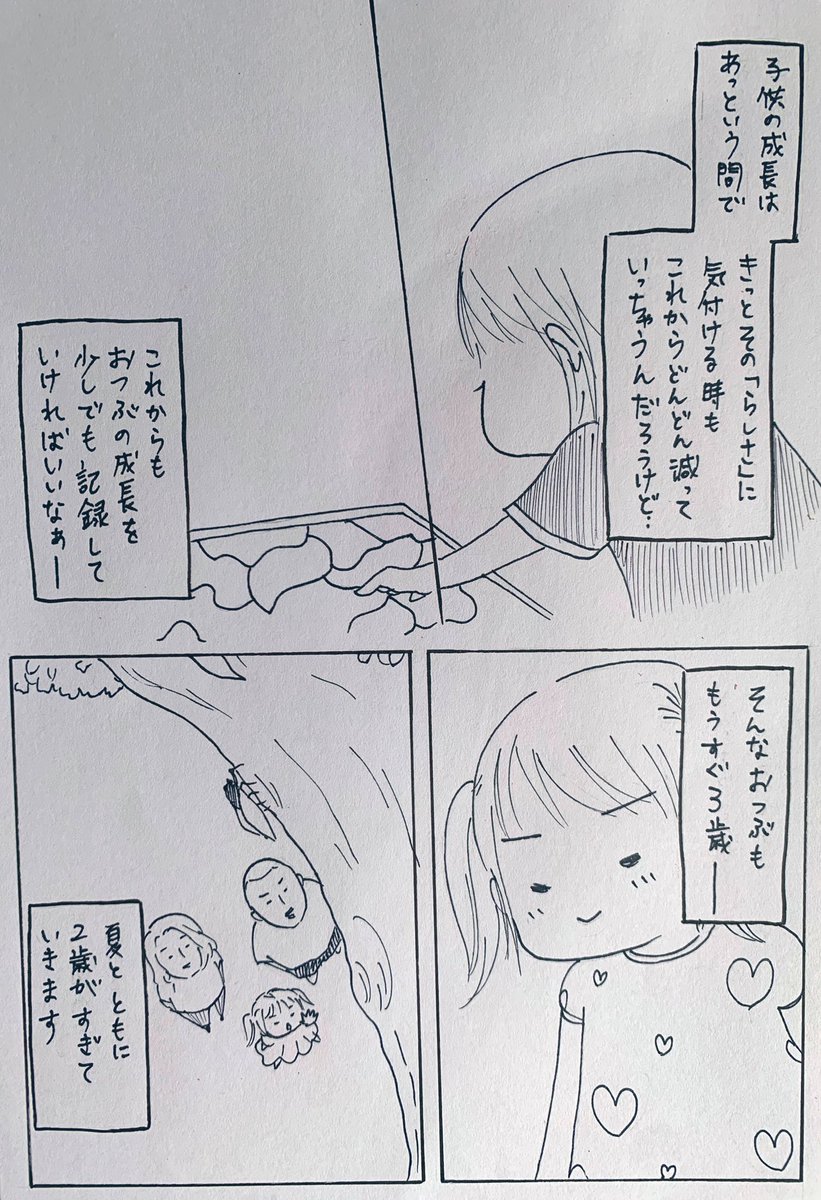 子供の成長は
あっという間で
きっとその「らしさ」に
気付ける時も
これからどんどん減って
いっちゃうんだろうけど…
これからも
おつぶの成長を
少しでも記録して
いければいいなぁー
そんなおつぶも
もうすぐ3歳ー
夏とともに
2歳がすぎて
いきます